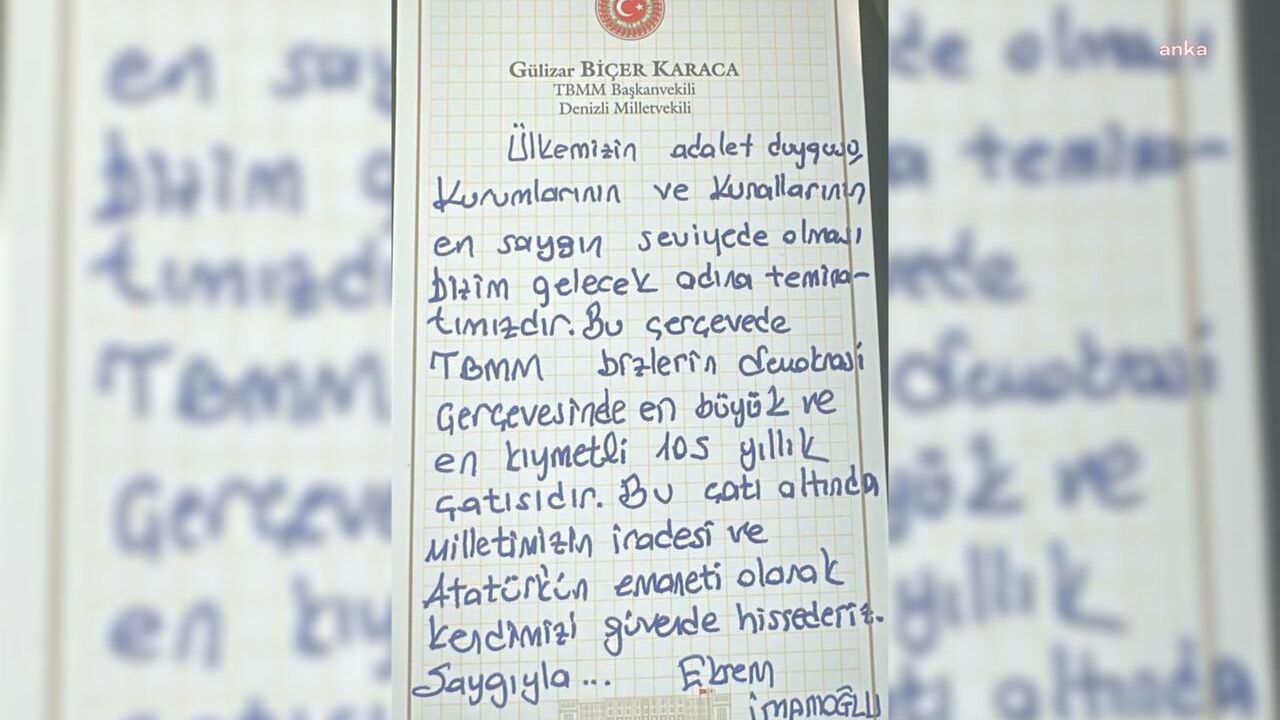 anka
Gülizar BİÇER KARACA
TBMM Başkanvekili
Denizli Milletvekili
Ülkemizin adalet duygusu,
Kurumlarının ve Kurallarının
en saygın seviyede olması
bizim gelecek adına temina-
tımızdır. Bu çerçevede
TBMM bizlerin demokrasi
Çerçevesinde en büyük ve
en kıymetli 105 yıllık
çatısıdır. Bu çatı altında
Milletimizin iradesi ve
Atatürk'ün emaneti olarak
kendimizi güvende hissederiz.
Saygıyla... Ekrem
İMAMOĞLU